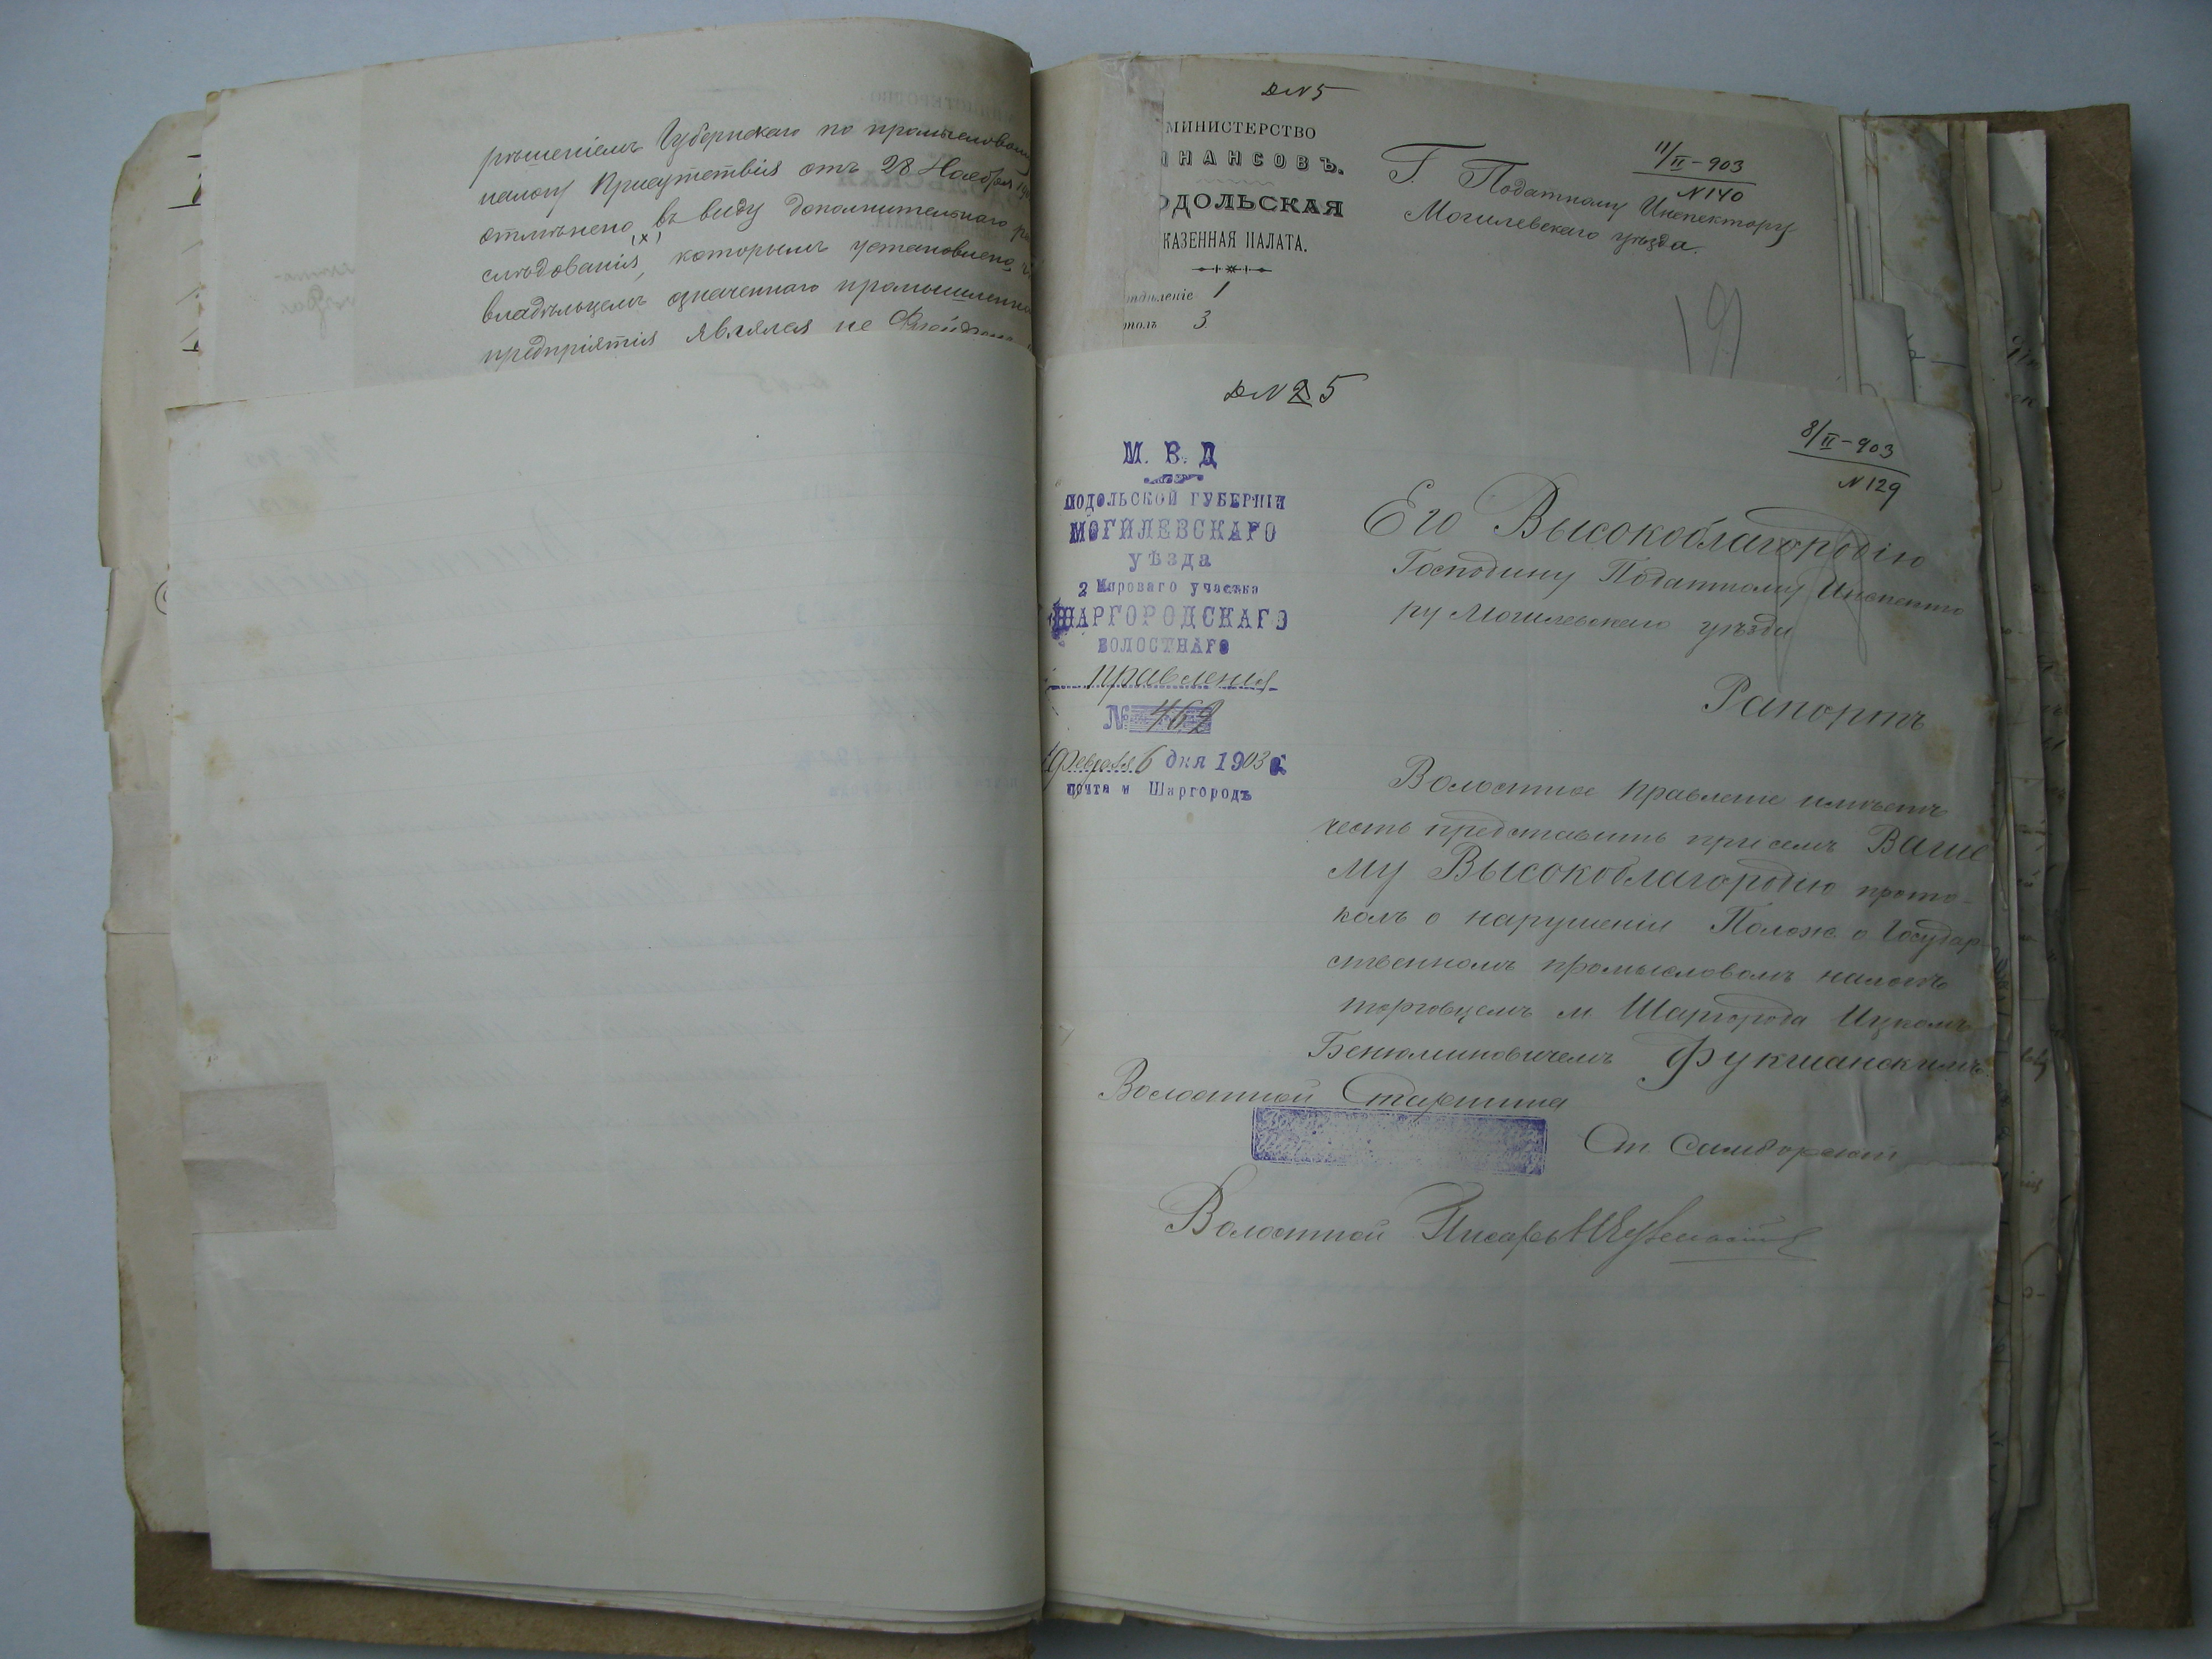 рѣшеніемъ Губернскаго по промысловому
налогу Присутствія отъ 28 Ноября
отмѣнено въ виду дополнительнаго
(х)
слѣдованія, которымъ установлено,
владѣльцемъ означеннаго промышленна
предпріятія являлся не
Д№5
МИНИСТЕРСТВО
ИНАНСОВЪ.
ОДОЛЬСКАЯ
КАЗЕННАЯ ПАЛАТА.
тдѣленіе 1
столъ 3
11/II-903
№140
Г. Податному Инспектору
Могилевскаго уѣзда.
19
Д№2 5
М. В. Д
ПОДОЛЬСКОЙ ГУБЕРНІИ
МОГИЛЕВСКАГО
уѣзда
2 Мироваго участка
ШАРГОРОДСКАГО
ВОЛОСТНАГО
правленія
№ 462
Февраля 6 дня 1903 г.
почта м Шаргородъ
8/II-903
№129
Его Высокоблагородію
Господину Податному Инспекто
ру Могилевскаго уѣзда
Рапортъ
Волостное Правленіе имѣетъ
честь представить при семъ Ваше
му Высокоблагородію прото-
колъ о нарушеніи Полож о Государ
ственномъ промысловомъ налогѣ
торговцемъ м Шаргорода Ицкомъ
Бенюминовичемъ Фукшанскимъ.
Волостной Старшина
Волостной Писарь